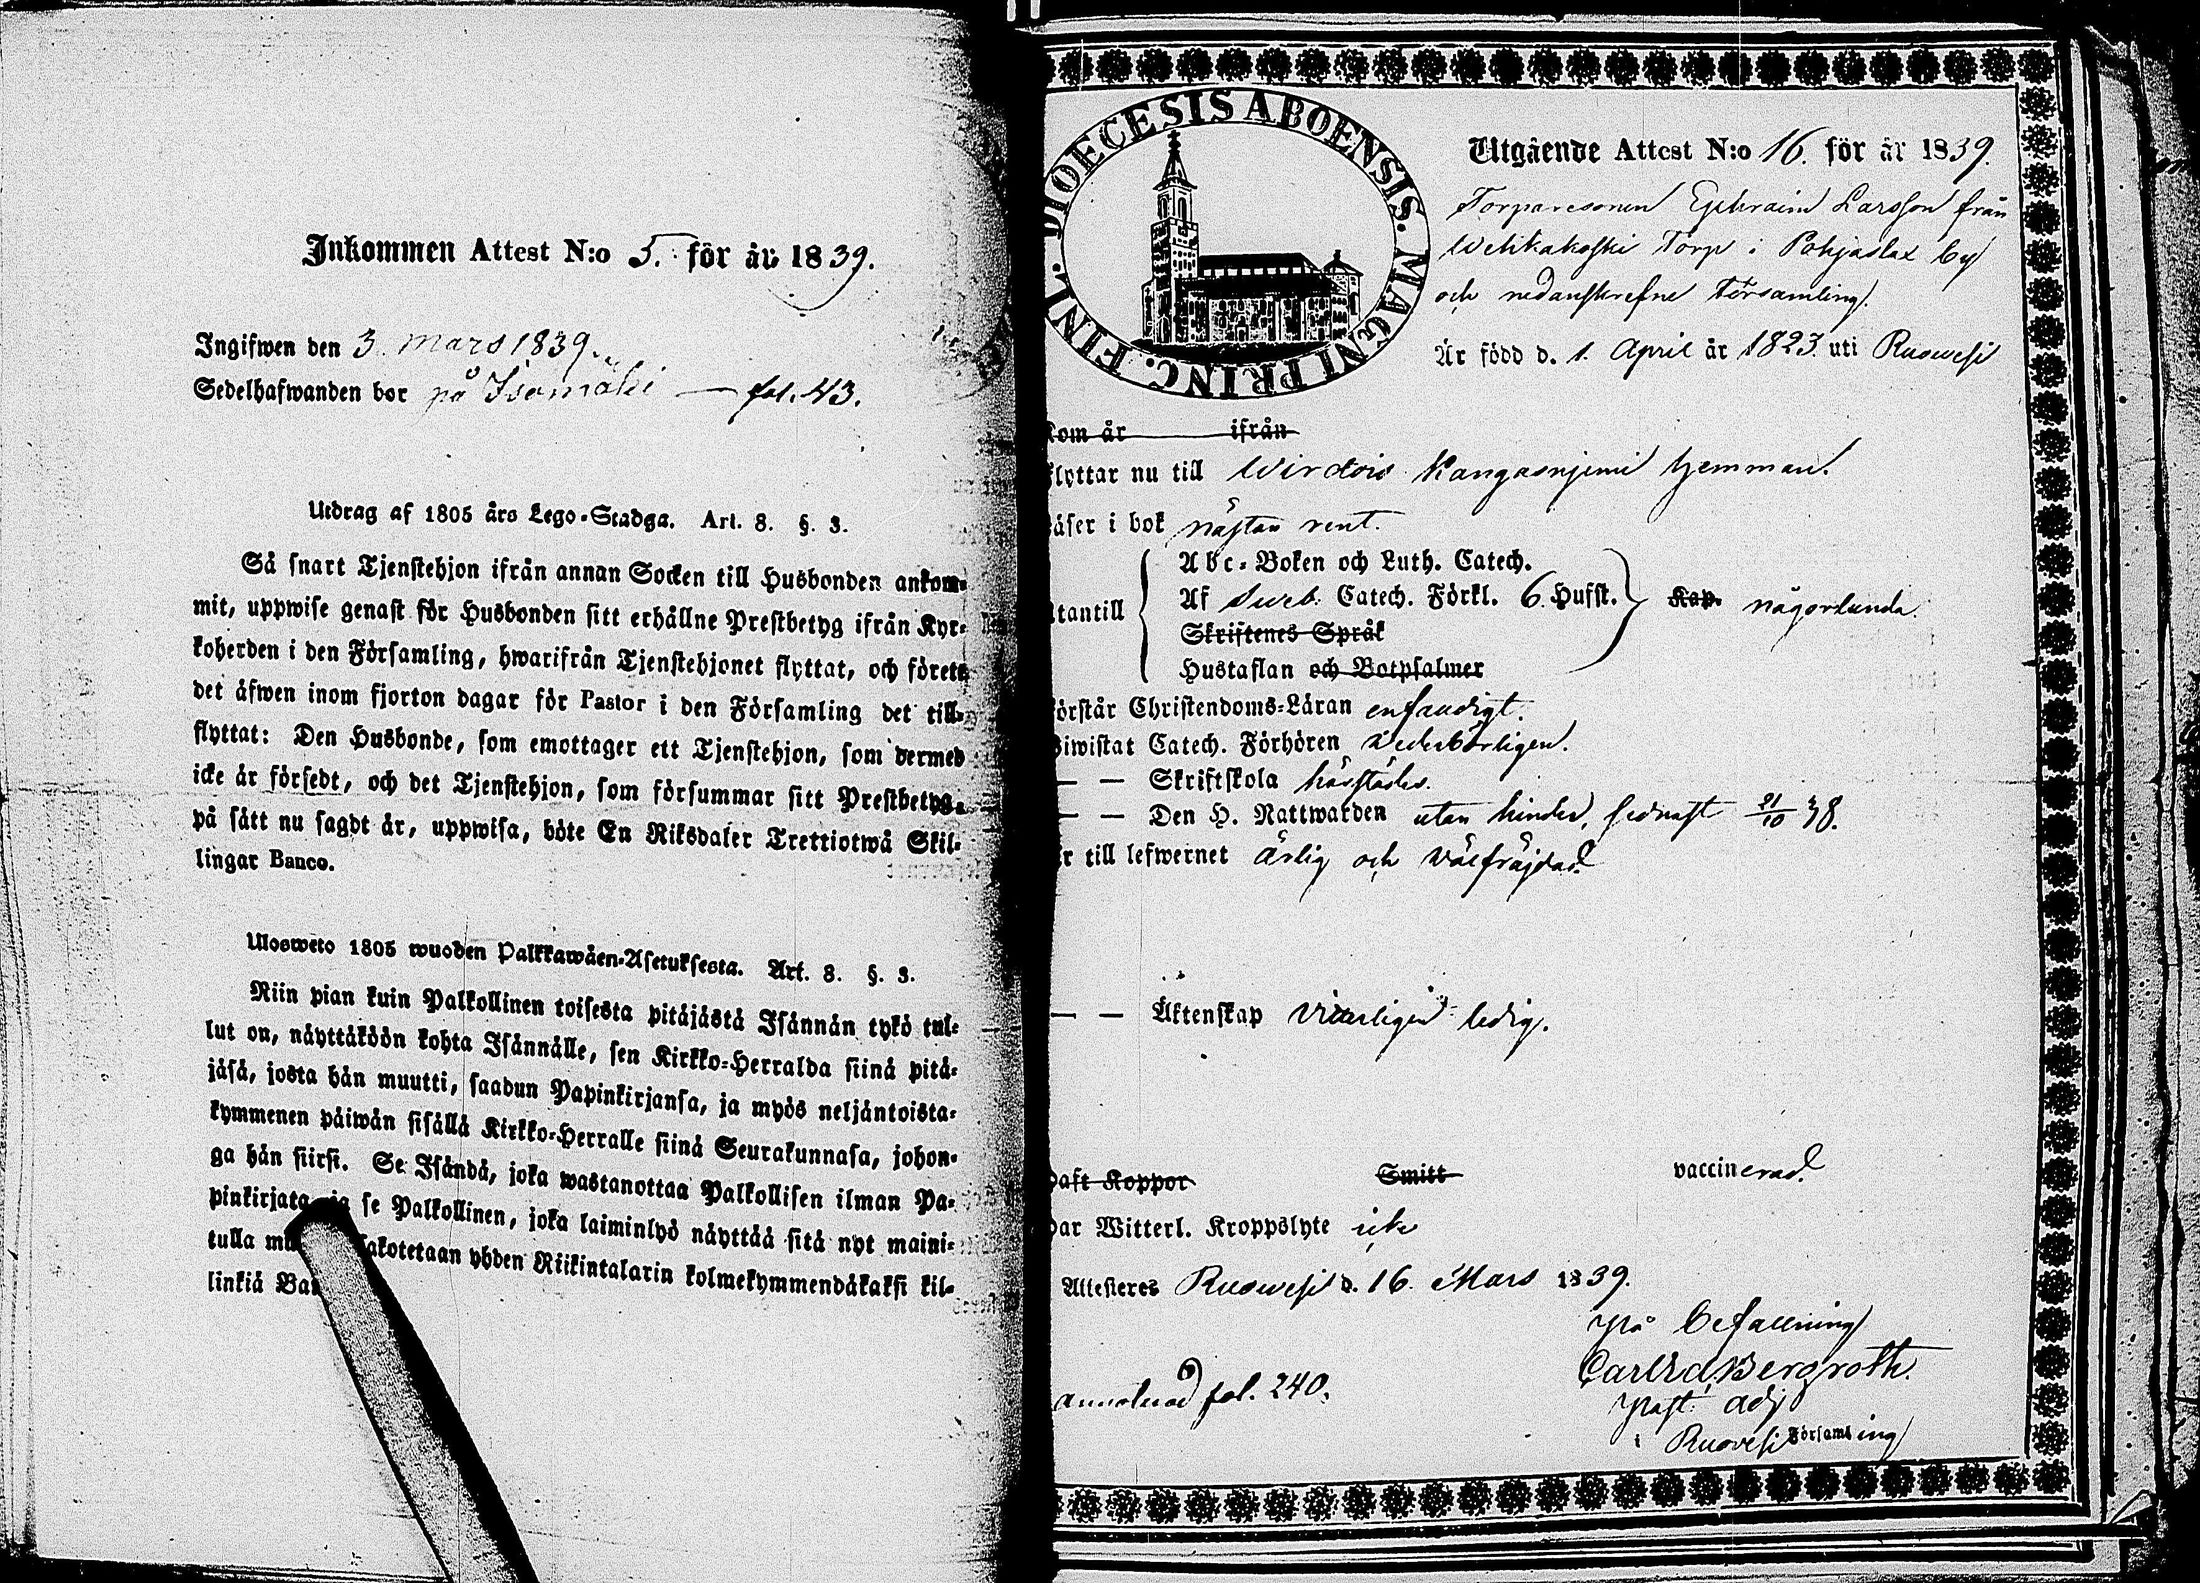 Inkommen Attest N:o 5. för år 1839.
Ingifwen den 3. Mars 1839.
Sedelhafwanden bor på Isomäki — fol. 43.
Utdrag af 1805 års Lego-Stadga. Art. 8. §. 3.
Så snart Tjenstehjon ifrån annan Socken till Husbonden ankom-
mit, uppwise genast för Husbonden sitt erhållne Prestbetyg ifrån Kyr-
koherden i den Församling, hwarifrån Tjenstehjonet flyttat, och förete
det åfwen inom fjorton dagar för Pastor i den Församling det till-
flyttat: Den Husbonde, som emottager ett Tjenstehjon, som dermed
icke är försedt, och det Tjenstehjon, som försummar sitt Prestbetyg
på sätt nu sagdt är, uppwisa, böte En Riksdaler Trettiotwå Skil-
lingar Banco.
Ulosweto 1805 wuoden Palkkawäen-Asetuksesta. Art. 8. §. 3.
Niin pian kuin Palkollinen toisesta pitäjästä Isännän tykö tul-
lut on, näyttäköön kohta Isännälle, sen Kirkko-Herralda siinä pitä-
jäsä, josta hän muutti, saadun Papinkirjansa, ja myös neljäntoista-
kymmenen päiwän sisällä Kirkko-Herralle siinä Seurakunnasa, johon-
ga hän siirsi. Se Isändä, joka wastanottaa Palkollisen ilman Pa-
pinkirjata ja se Palkollinen, joka laiminlyö näyttää sitä nyt maini-
tulla sakotetaan yhden Riikintalarin kolmekymmendäkaksi kil-
linkiä
DIOECESIS ABOENSIS. MAGNI PRINC. FINL.
Utgående Attest N:o 16. för år 1839.
Torparesonen Ephraim Larsson från
Torp i Pohjaslax by
och nedanskrefne Församling.
Är född d. 1. April år 1823. uti Ruowesi
Kom år ifrån
flyttar nu till Wirdois Kangasnjemi hemman.
läser i bok nästan rent.
Utantill
Abc-Boken och Luth. Catech.
Af Sweb. Catech. Förkl. 6. Hufst. Kap. någorlunda.
Skriftenes Språk
Hustaflan och Botpsalmer
förstår Christendoms-Läran enfaldigt.
Biwistat Catech. Förhören wederbörligen.
— — Skriftskola härstädes.
— — Den H. Nattwarden utan hinder, sednast 21/10 38.
Är till lefwernet ärlig och wälfräjdad.
— — Äktenskap witterligen ledig.
haft Koppor Smitt vaccinerad.
har Witterl. Kroppslyte icke
Attesteres Ruowesi d. 16. Mars 1839.
På befallning
Bergroth.
Past. adj.
annoterad fol. 240.
i Ruovesi Församling